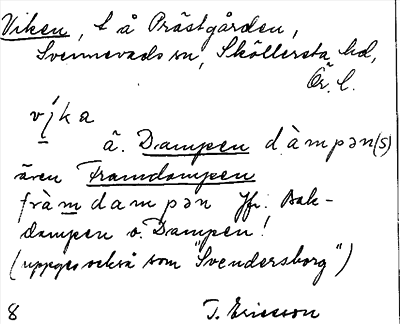 Viken, t å Prästgården,
Svennevads sn, Sköllersta hd,
Ör. l.
víka
ä. Dampen dàmpən(s)
även Framdampen
fràmdampən Jfr. Bak-
dampen o. Dampen!
(uppges också som "Svendersborg")
8 T. Ericsson